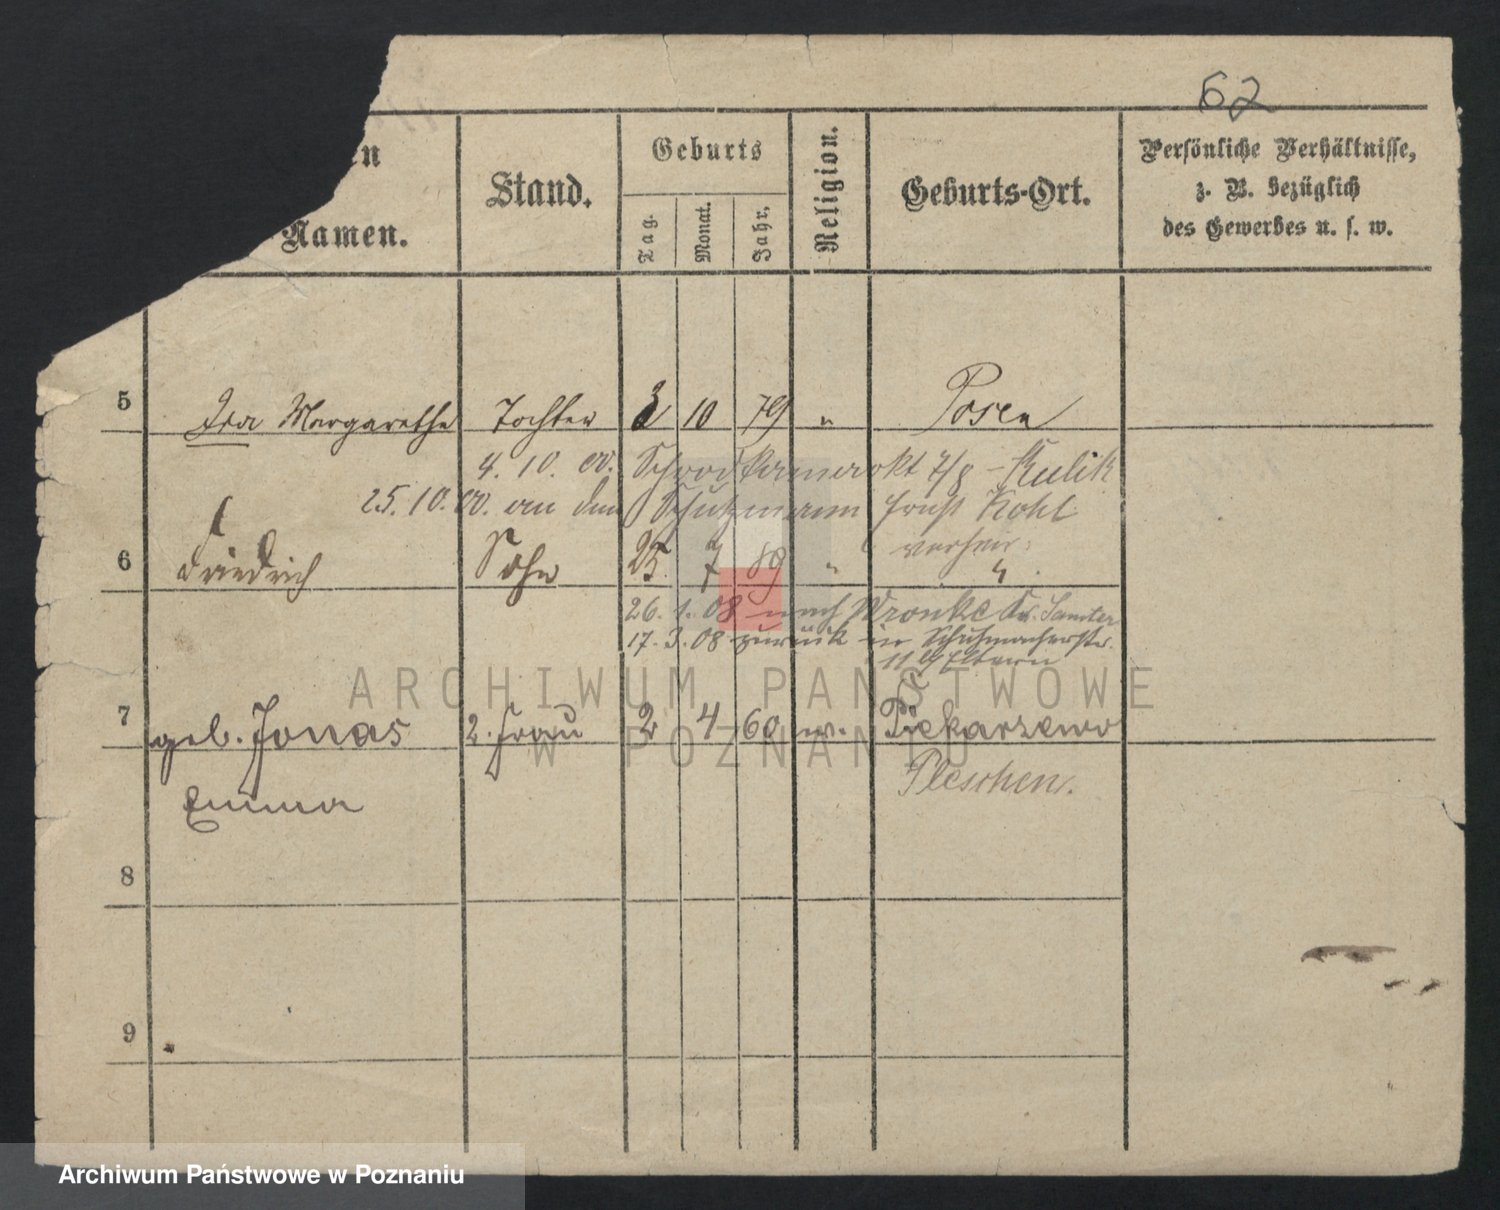 62
Namen.
Stand.
Geburts
Tag.
Monat.
Jahr,
Religion.
Geburts-Ort.
Persönliche Verhältnisse,
z. B. bezüglich
des Gewerbes u. s. w.
5 Margarethe Tochter 3 10 79 " Posen
4. 10. 00. 7/8 - Kulik
25. 10. 00. an den Schutzmann Ernst Kohl
verheir:
6 Friedrich Sohn 25. 7 89 " "
26. 1. 08 nach Wronke Kr. Samter
17. 3. 08 zurück in Schuhmacherstr.
11 b/ Eltern
7 geb. Jonas 2. Frau 2 4 60 ev. Piekarzewo
Pleschen.
Emma
8
9
ARCHIWUM PAŃSTWOWE
W POZNANIU
Archiwum Państwowe w Poznaniu